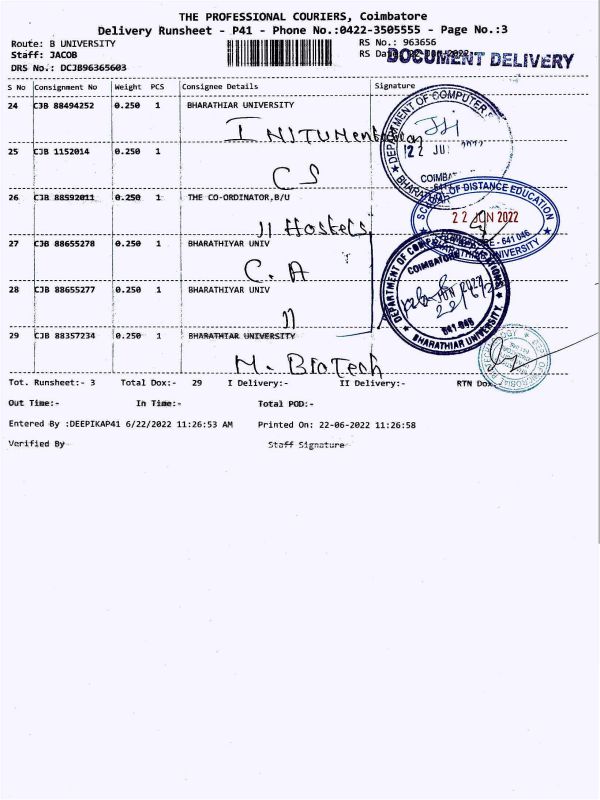 THE PROFESSIONAL COURIERS, Coimbatore
Delivery Runsheet - P41 - Phone No.:0422-3505555 - Page No.:3
Route: B UNIVERSITY
RS No.: 963656
Staff: JACOB
RS Date: 22-JUN-2022
DOCUMENT DELIVERY
DRS No.: DCJB96365603
S No Consignment No Weight PCS Consignee Details Signature
24 CJB 88494252 0.250 1 BHARATHIAR UNIVERSITY
25 CJB 1152014 0.250 1
CS
26 CJB 88592011 0.250 1 THE CO-ORDINATOR,B/U
11 Hostels
27 CJB 88655278 0.250 1 BHARATHIYAR UNIV
C.A
28 CJB 88655277 0.250 1 BHARATHIYAR UNIV
11
29 CJB 88357234 0.250 1 BHARATHIAR UNIVERSITY
M. BioTech
DEPARTMENT OF COMPUTER
22 JU
COIMBA
SCHOOL OF DISTANCE EDUCATION
22 JUN 2022
COIMBATORE - 641 046
BHARATHIAR UNIVERSITY
DEPARTMENT OF COMPUTER APPLICATIONS
COIMBATORE
641 046
BHARATHIAR UNIVERSITY
Tot. Runsheet:- 3 Total Dox:- 29 I Delivery:- II Delivery:- RTN Dox
Out Time:- In Time:- Total POD:-
Entered By :DEEPIKAP41 6/22/2022 11:26:53 AM Printed On: 22-06-2022 11:26:58
Verified By Staff Signature